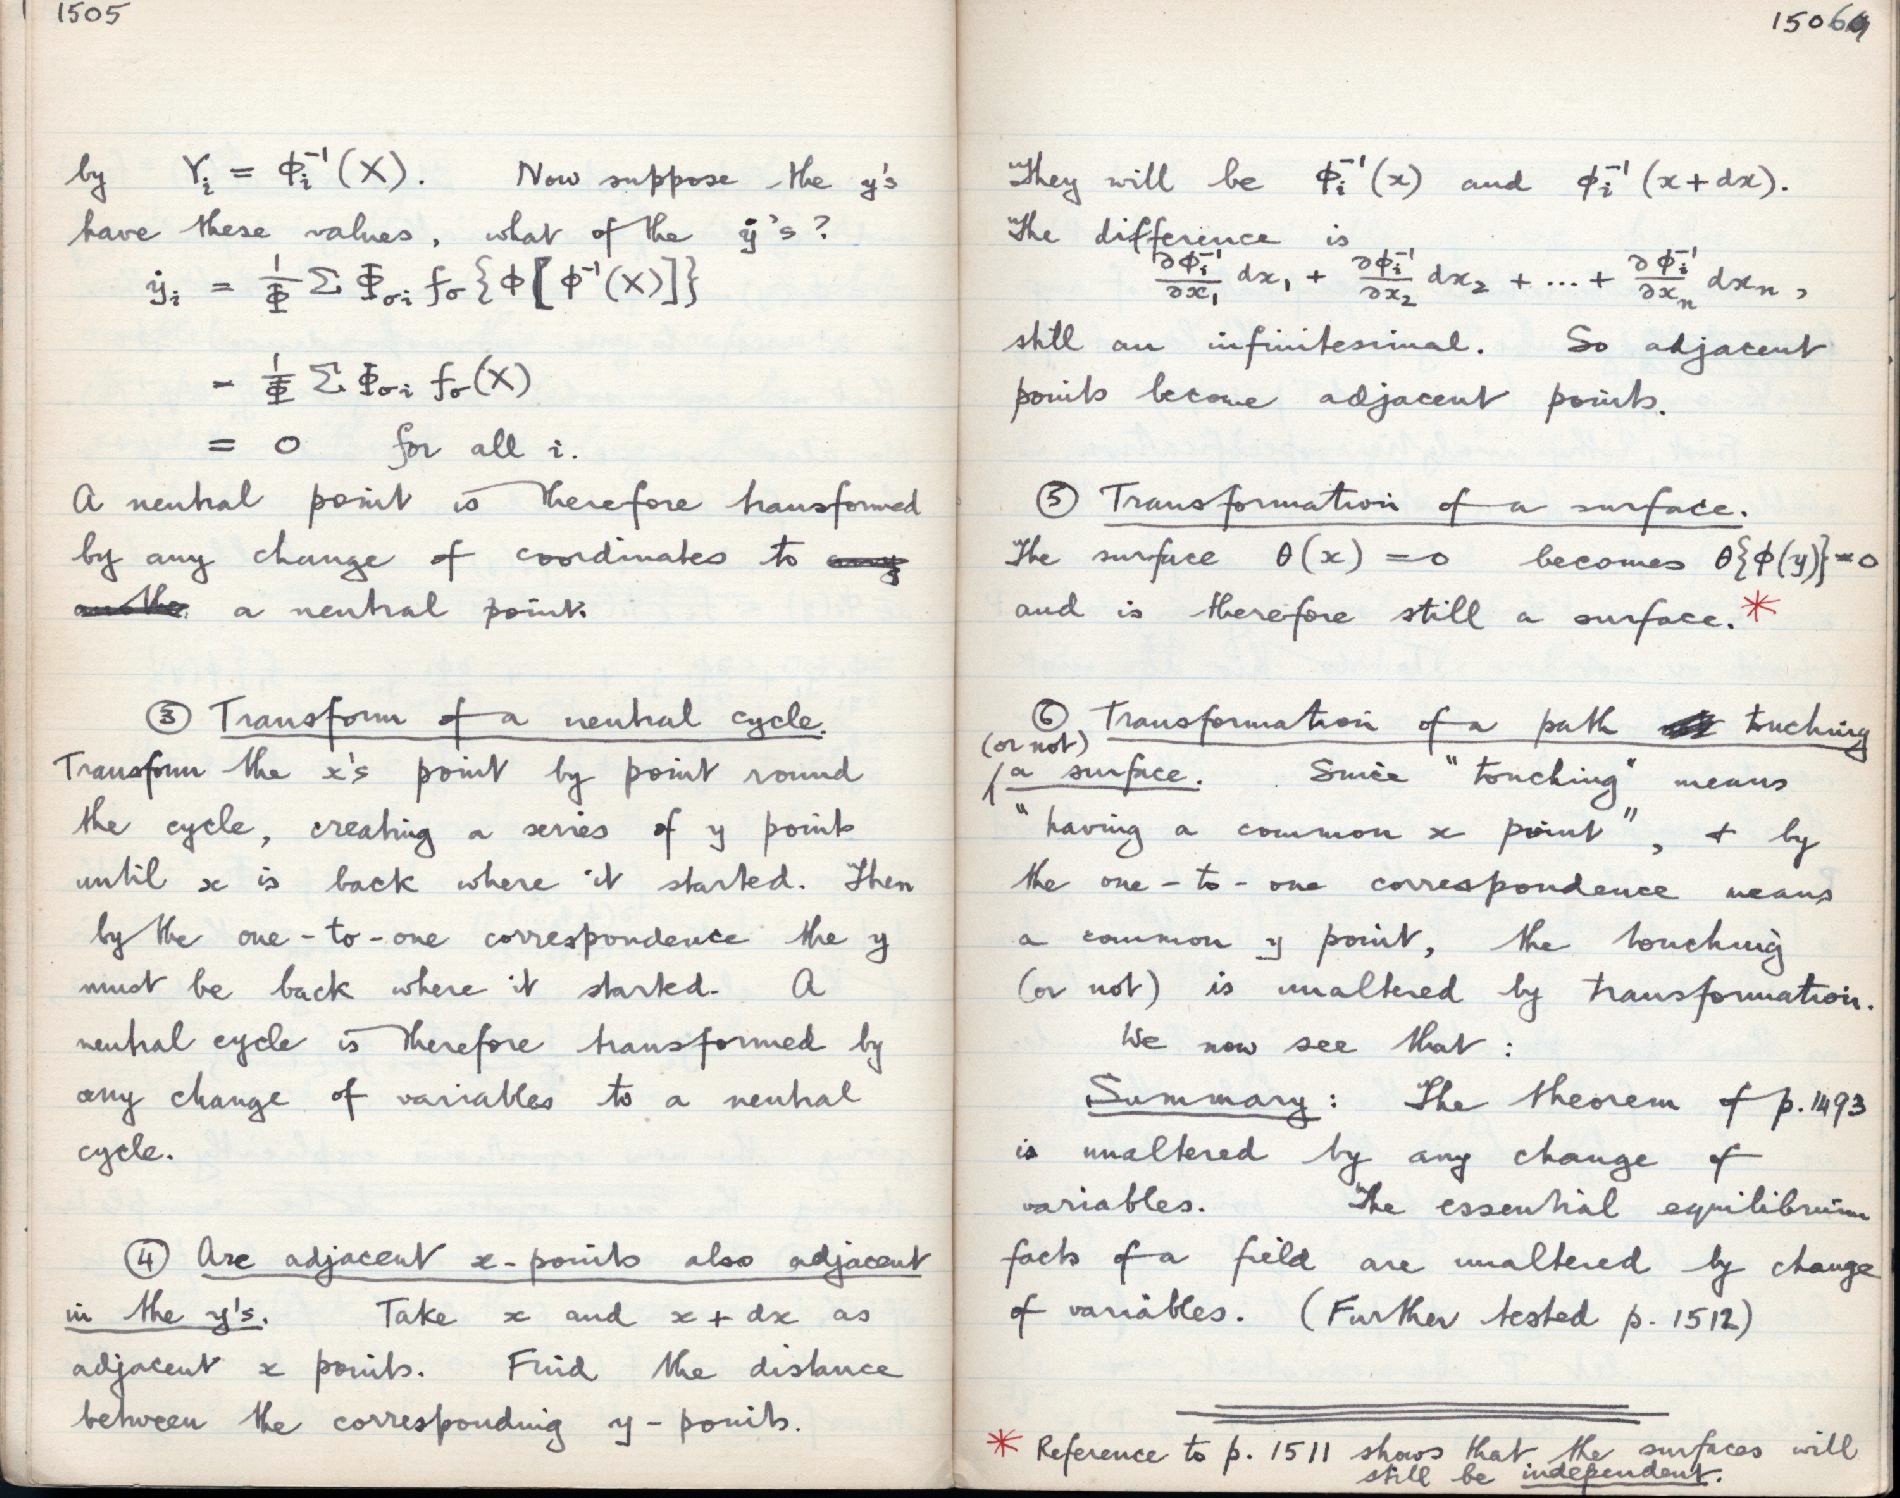 1505
by Yᵢ = ϕᵢ⁻¹(X). Now suppose the y's
have these values, what of the ẏ's?
ẏᵢ = 1/Φ Σ Φσᵢ fσ{ϕ[ϕ⁻¹(X)]}
= 1/Φ Σ Φσᵢ fσ(X)
= 0 for all i.
A neutral point is therefore transformed
by any change of coordinates to any
another a neutral point.
③ Transform of a neutral cycle.
Transform the x's point by point round
the cycle, creating a series of y points
until x is back where it started. Then
by the one-to-one correspondence the y
must be back where it started. A
neutral cycle is therefore transformed by
any change of variables to a neutral
cycle.
④ Are adjacent x-points also adjacent
in the y's. Take x and x + dx as
adjacent x points. Find the distance
between the corresponding y-points.
1506
They will be ϕᵢ⁻¹(x) and ϕᵢ⁻¹(x+dx).
The difference is
∂ϕᵢ⁻¹/∂x₁ dx₁ + ∂ϕᵢ⁻¹/∂x₂ dx₂ + ... + ∂ϕᵢ⁻¹/∂xₙ dxₙ,
still an infinitesimal. So adjacent
points become adjacent points.
⑤ Transformation of a surface.
The surface θ(x) = 0 becomes θ{ϕ(y)} = 0
and is therefore still a surface.*
⑥ Transformation of a path touching
(or not)
a surface. Since "touching" means
"having a common x point", & by
the one-to-one correspondence means
a common y point, the touching
(or not) is unaltered by transformation.
We now see that:
Summary: The theorem of p. 1493
is unaltered by any change of
variables. The essential equilibrium
facts of a field are unaltered by change
of variables. (Further tested p. 1512)
* Reference to p. 1511 shows that the surfaces will
still be independent.